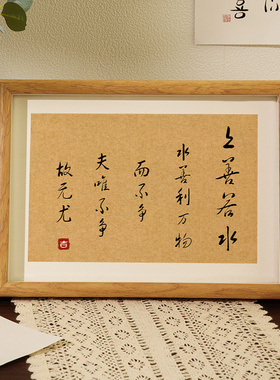 上善若水
水善利万物
而不争
夫唯不争
故无尤
喜